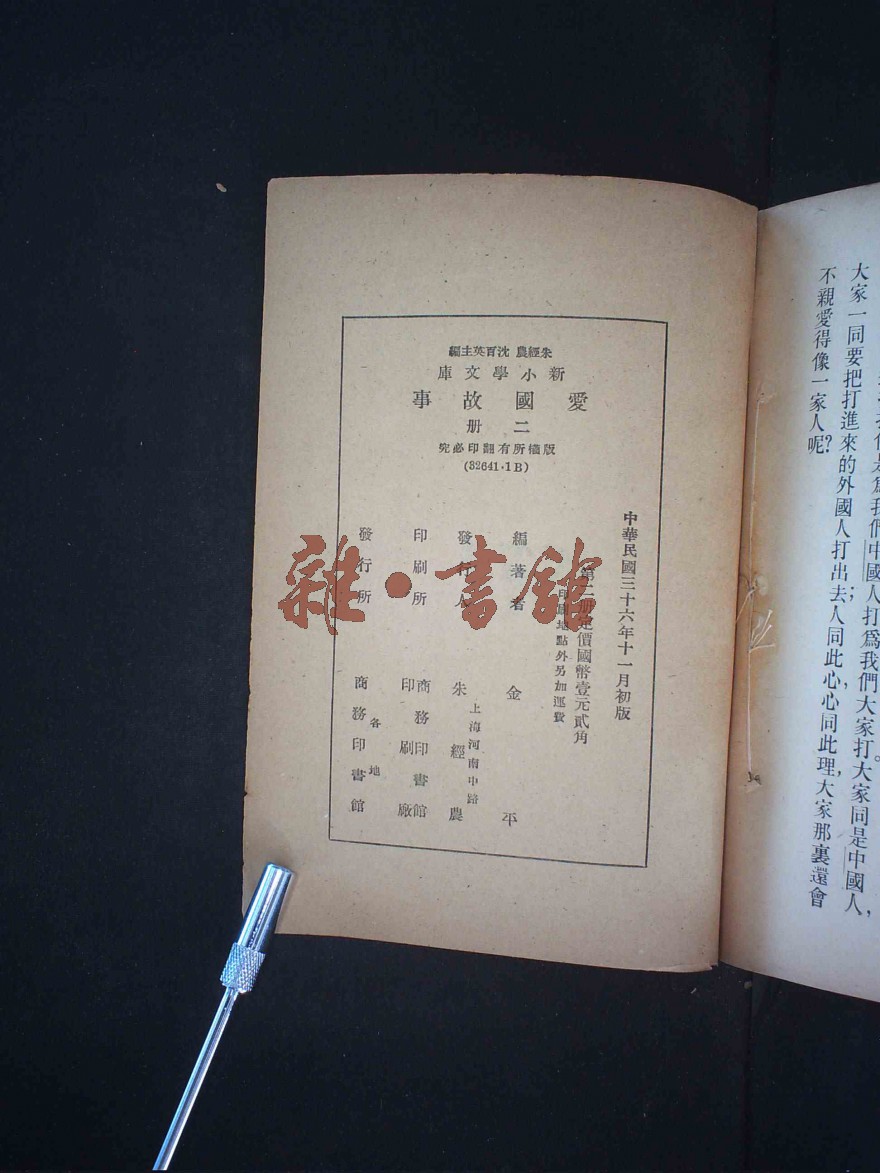 編主英百沈 農經朱
庫文學小新
事故國愛
册二
究必印翻有所權版
(32641·1B)
中華民國三十六年十一月初版
第二册定價國幣壹元貳角
印刷地點外另加運費
編著者 金平
發行人 朱經農
上海河南中路
印刷所 商務印書館
印刷廠
發行所 各地
商務印書館
雜·書館
中國人打爲我們大家打大家同是中國人,
大家一同要把打進來的外國人打出去人同此心心同此理,大家那裏還會
不親愛得像一家人呢?